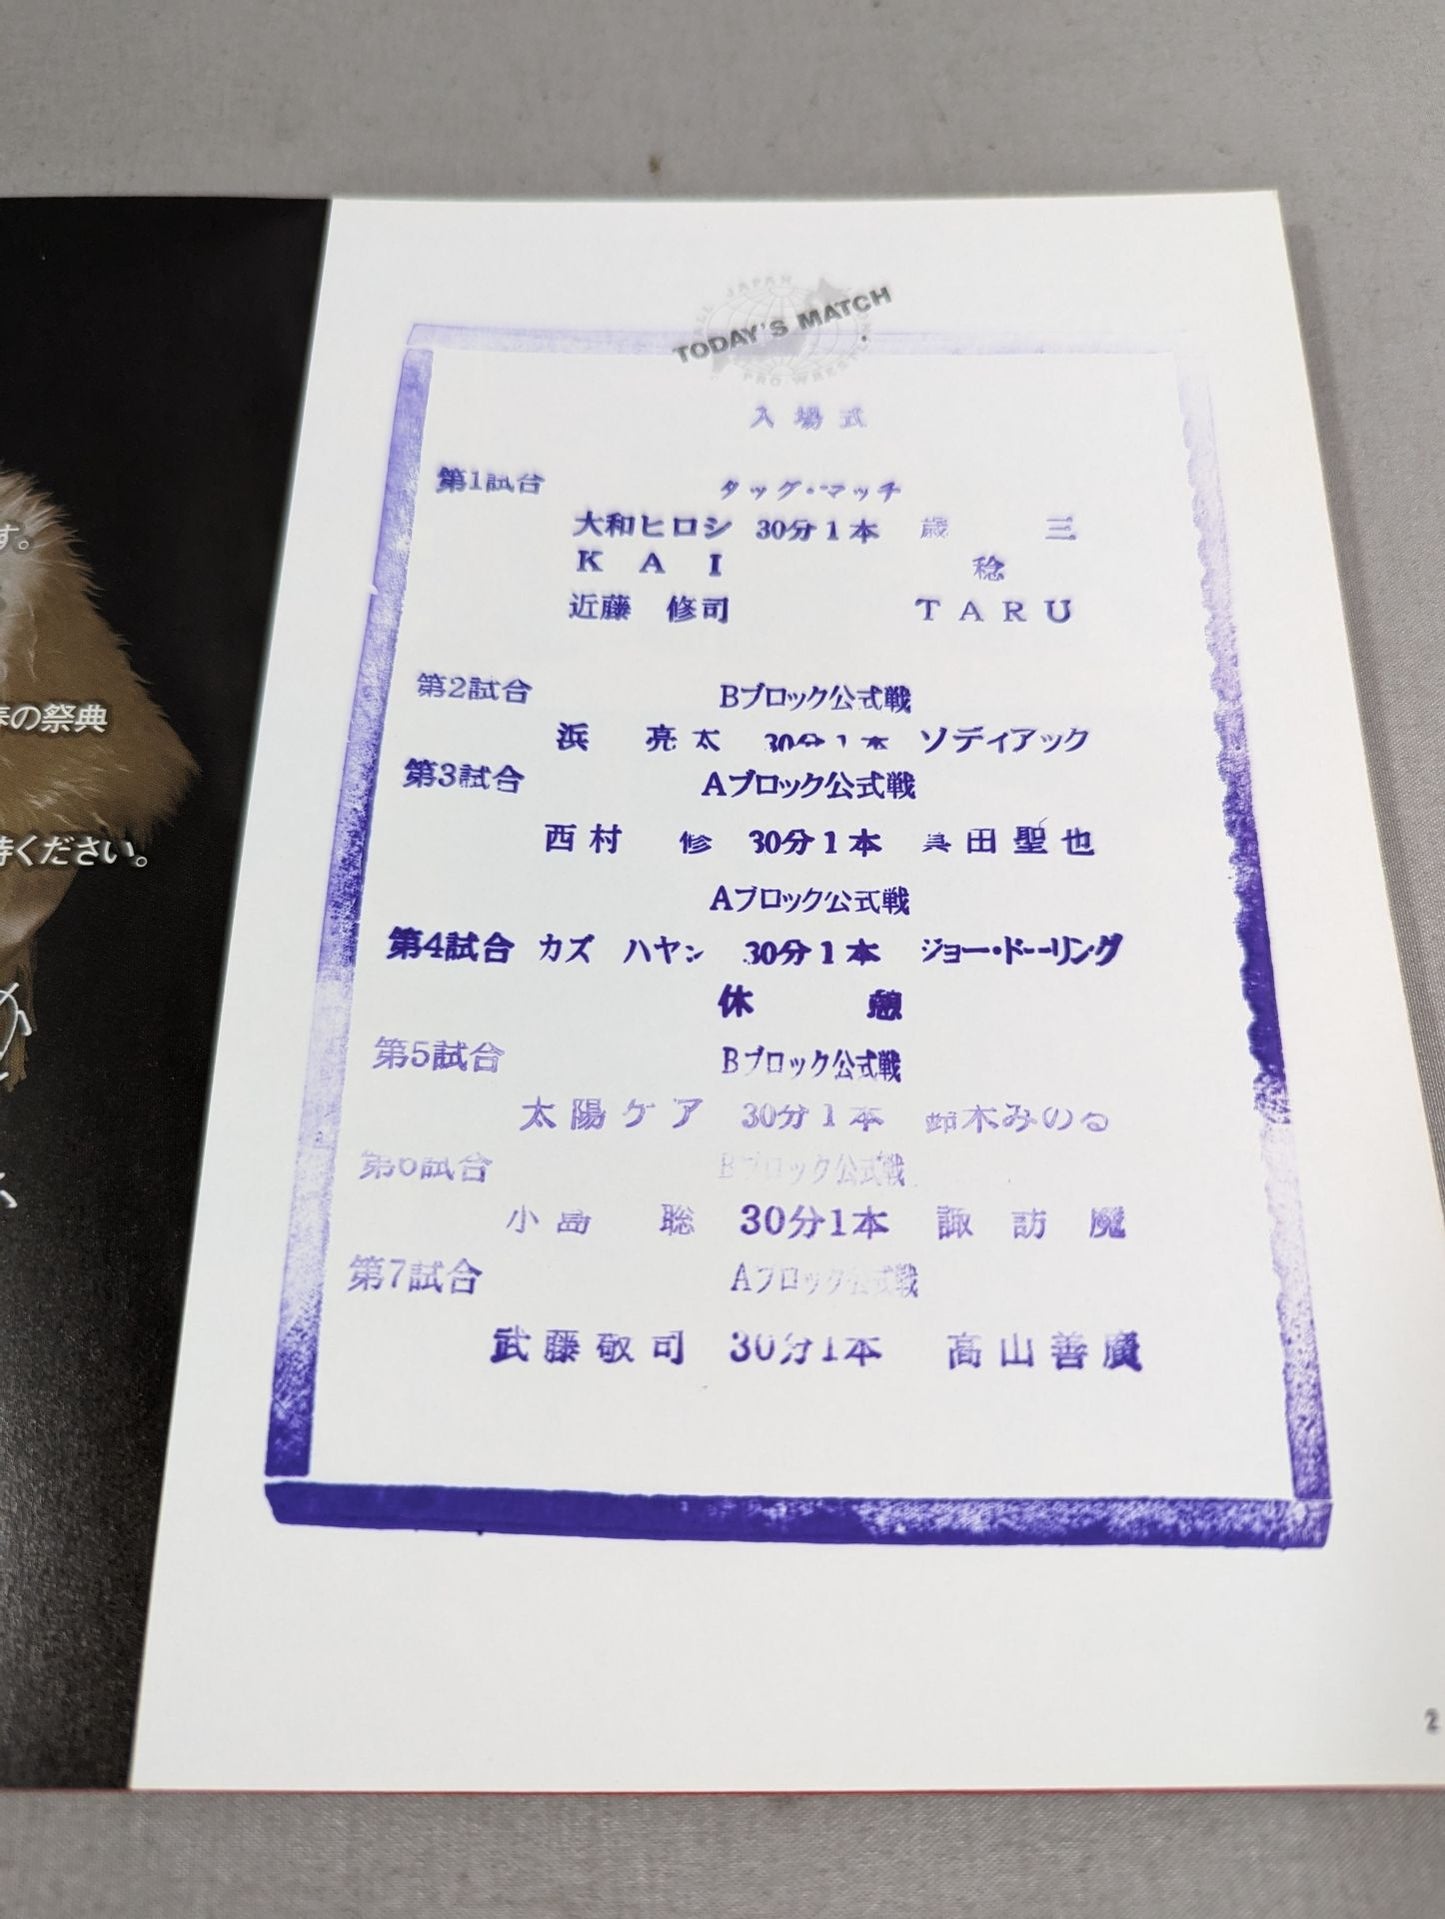 す。
春の祭典
待ください。
ALL JAPAN
TODAY'S MATCH
PRO WRESTLING
入場式
第1試合 タッグ・マッチ
大和ヒロシ 30分1本 歳三
KAI 稔
近藤 修司 TARU
第2試合 Bブロック公式戦
浜 亮太 30分1本 ソディアック
第3試合 Aブロック公式戦
西村 修 30分1本 真田聖也
Aブロック公式戦
第4試合 カズ ハヤシ 30分1本 ジョー・ドーリング
休 憩
第5試合 Bブロック公式戦
太陽ケア 30分1本 鈴木みのる
第6試合 Bブロック公式戦
小島 聡 30分1本 諏訪魔
第7試合 Aブロック公式戦
武藤敬司 30分1本 高山善廣
2